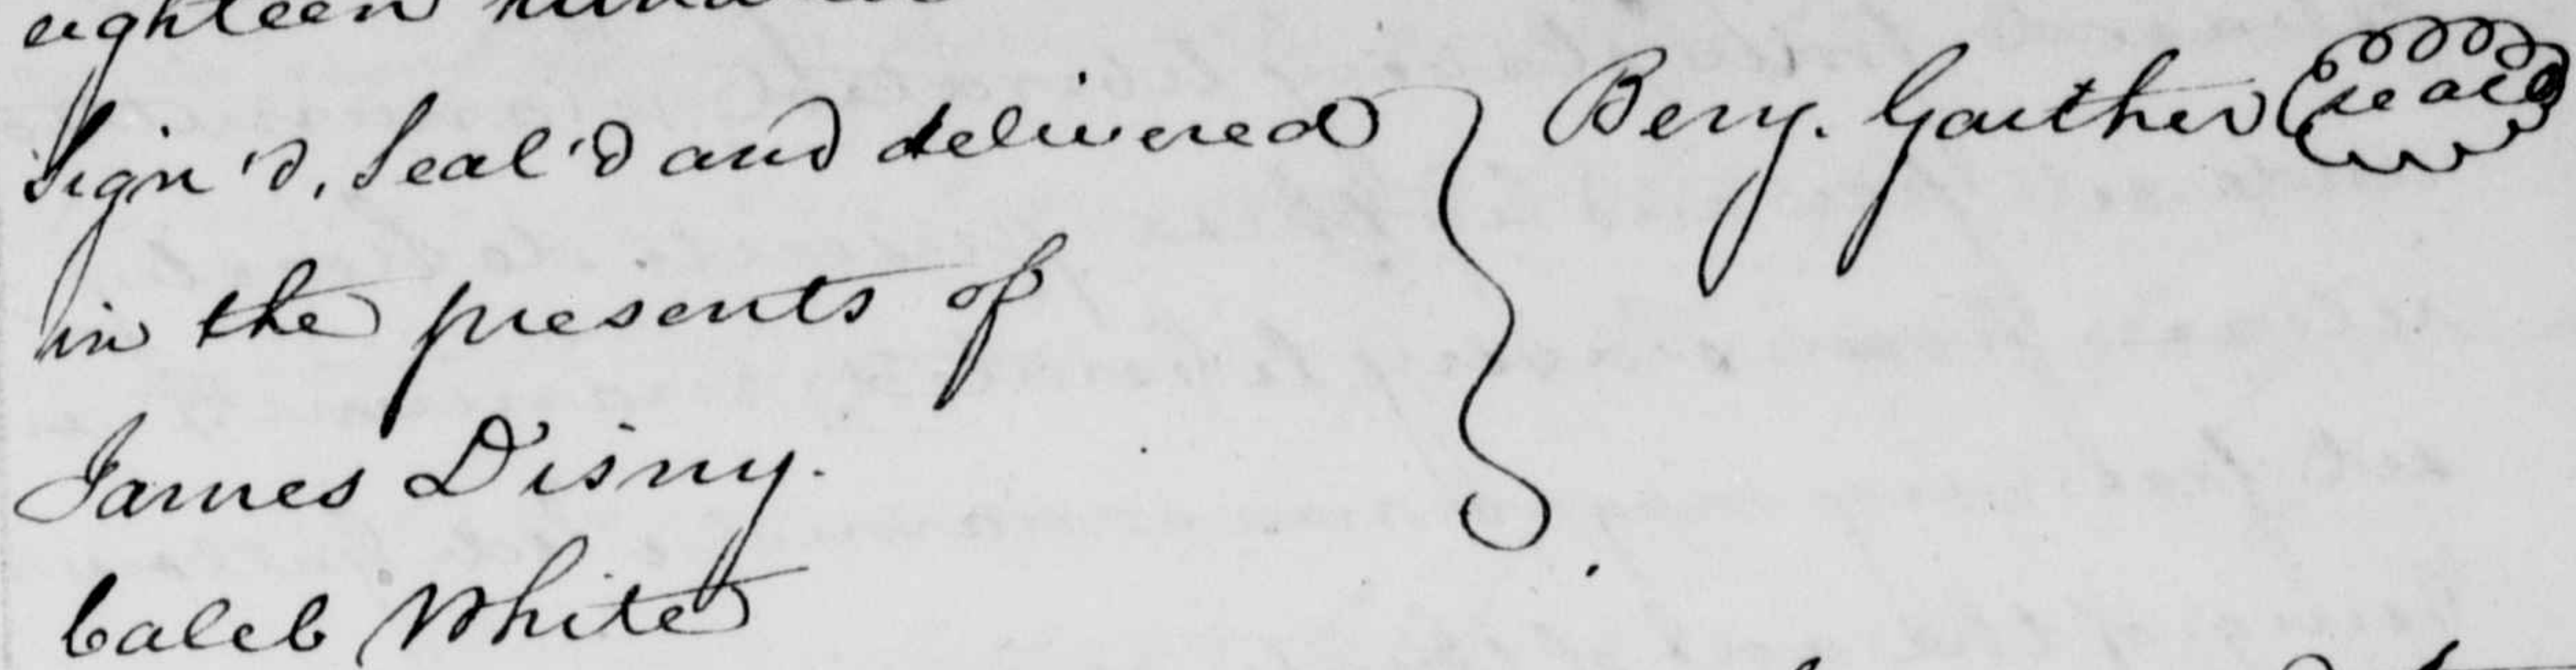 eighteen hund
Sign'd, Seal'd and delivered
in the presents of
James Disny.
Caleb White
Benj. Gaither
seal